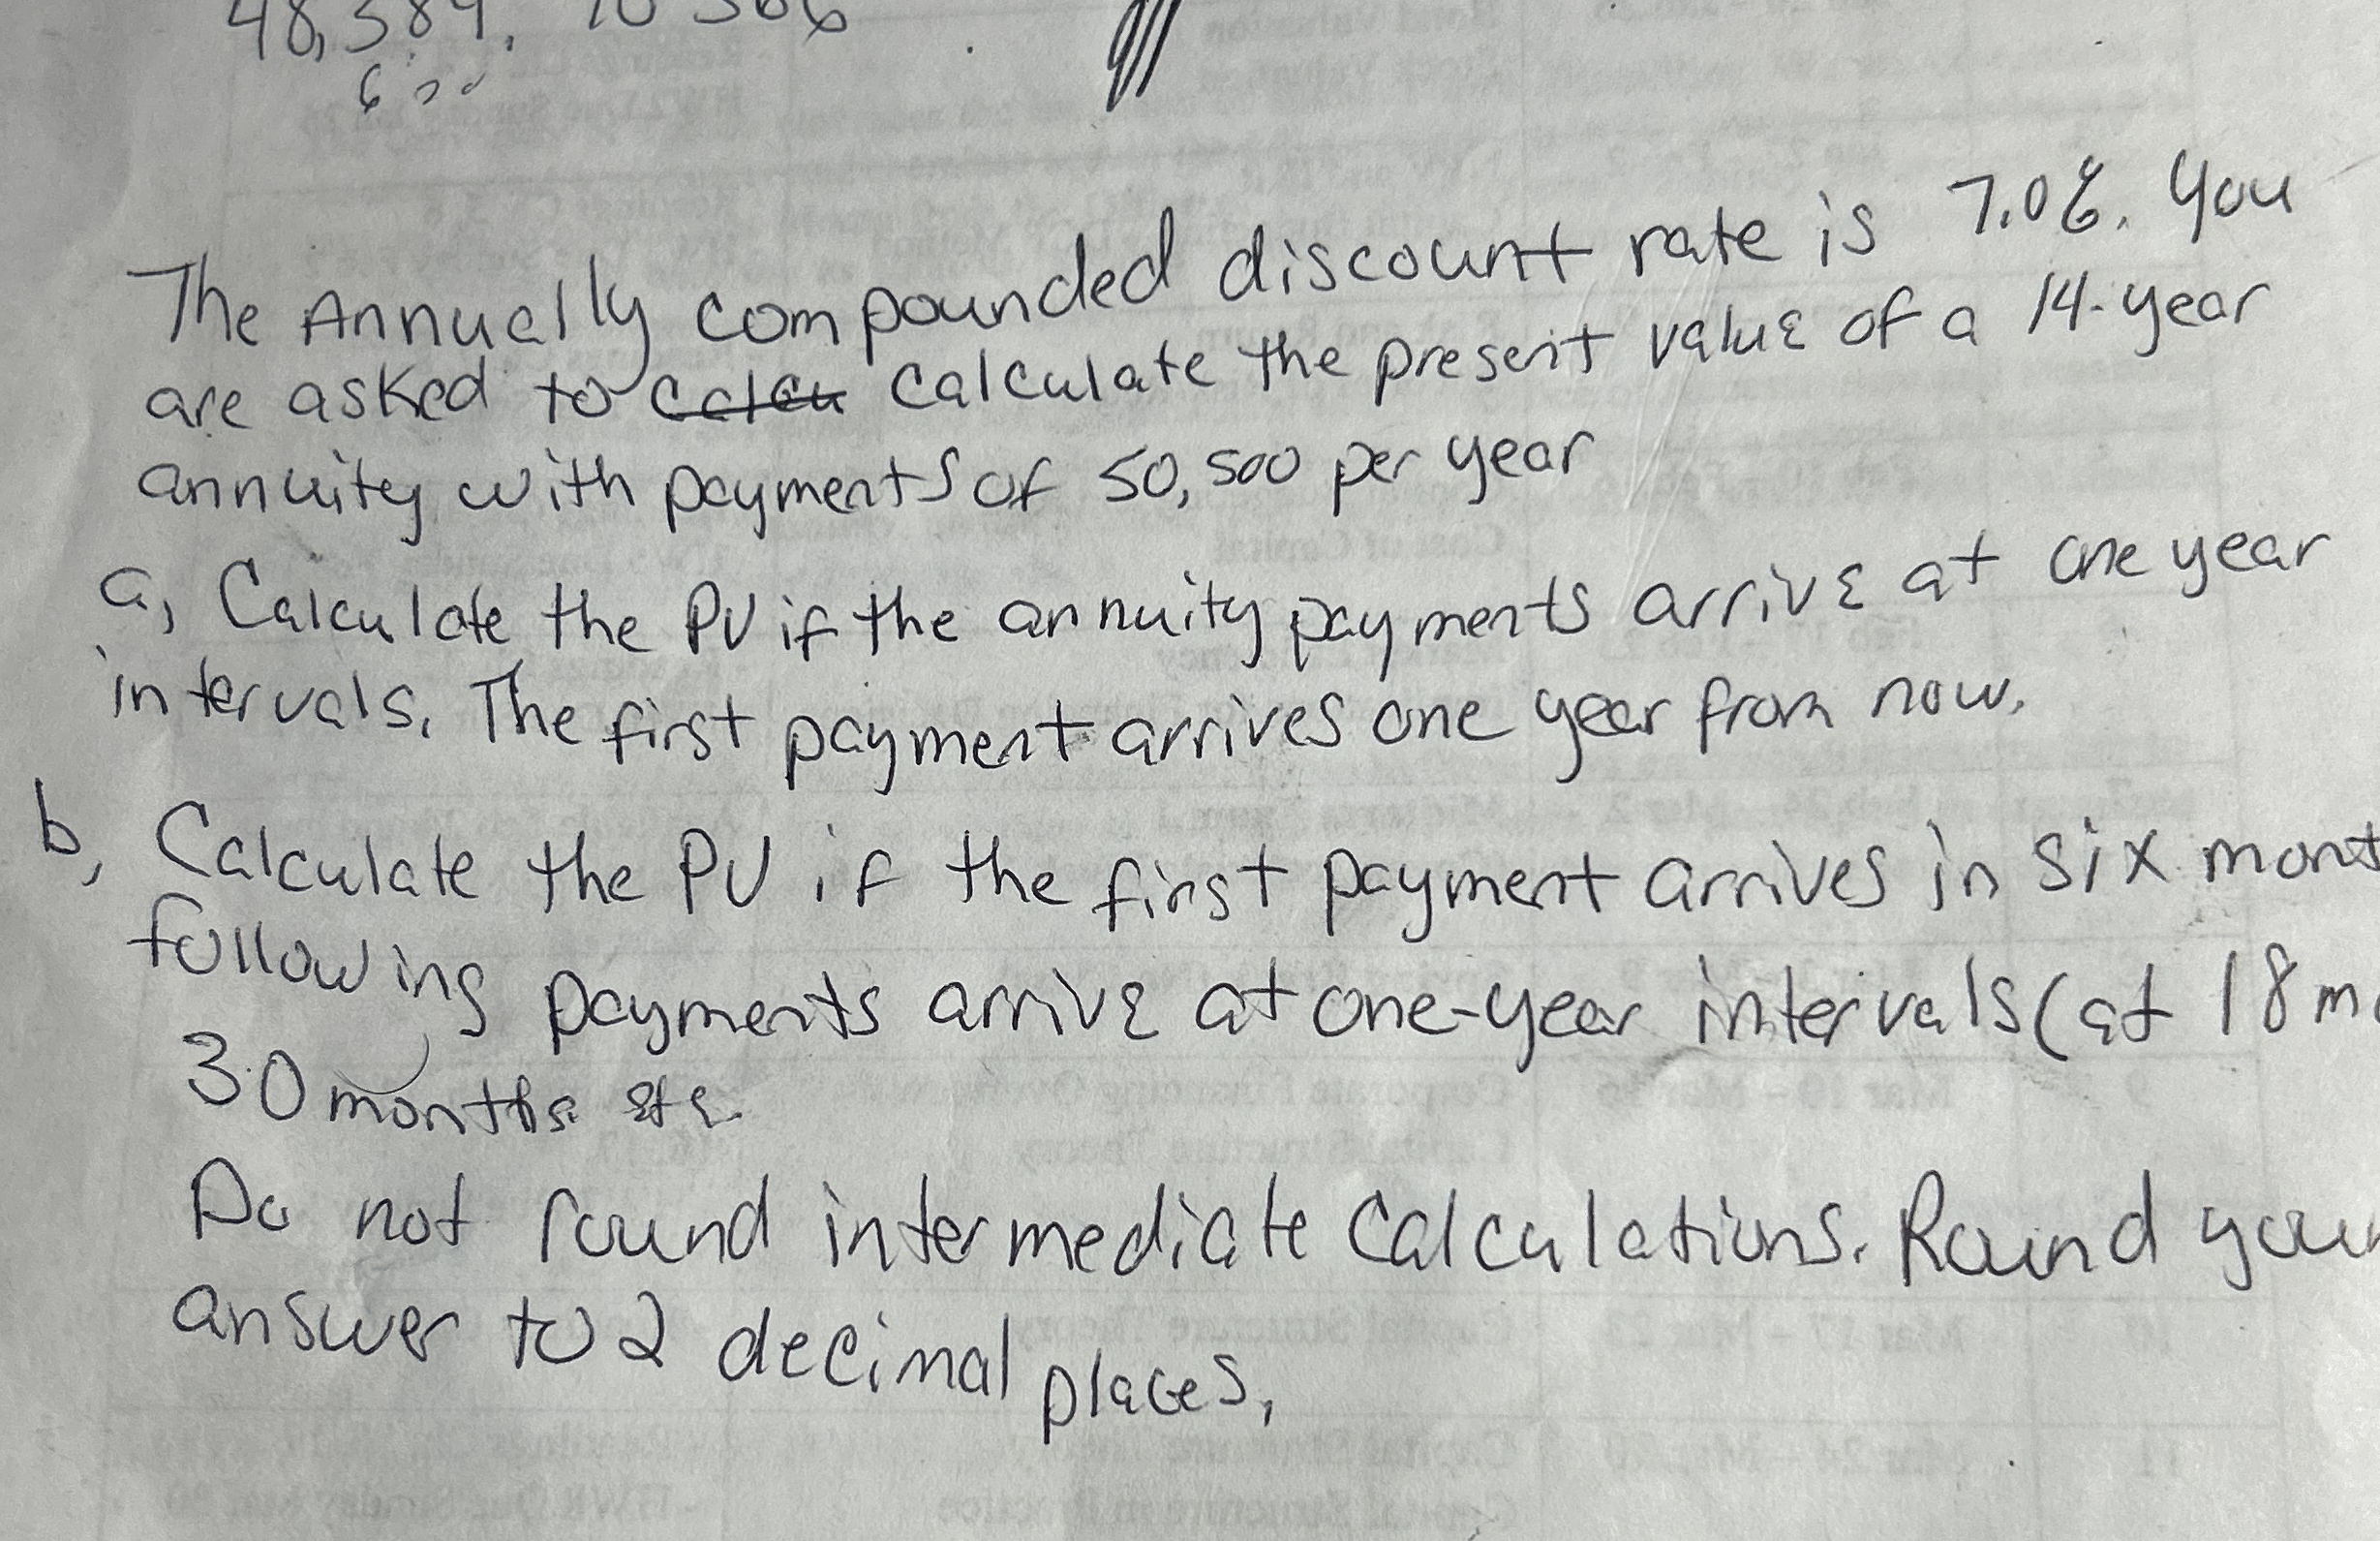 48,384.
The Annually compounded discount rate is 7.0%. You
are asked to calculate the present value of a 14-year
annuity with payments of 50,500 per year
a, Calculate the PV if the annuity payments arrive at one year
intervals. The first payment arrives one year from now.
b, Calculate the PV if the first payment arrives in six mont
following payments arrive at one-year intervals (at 18 m
30 months etc.
Do not round intermediate calculations. Round your
answer to 2 decimal places.